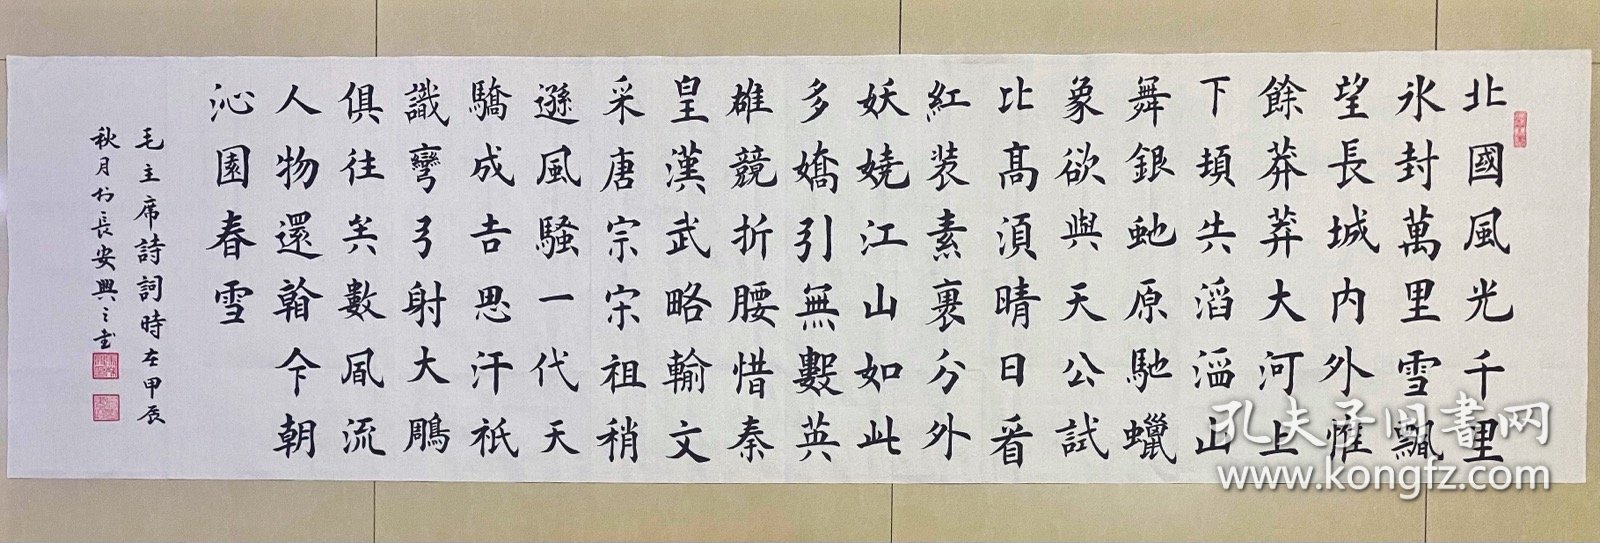 北國風光千里
氷封萬里雪飄
望長城内外惟
餘莽莽大河上
下頓失滔滔山
舞銀虵原馳蠟
象欲與天公試
比髙須晴日看
紅装素裹分外
妖嬈江山如此
多嬌引無數英
雄競折腰惜秦
皇漢武略輸文
采唐宗宋祖稍
遜風騷一代天
驕成吉思汗祇
識彎弓射大鵰
俱往矣數風流
人物還看今朝
沁園春雪
毛主席詩詞時在甲辰
秋月於長安興之書
孔夫子旧書网
www.kongfz.com